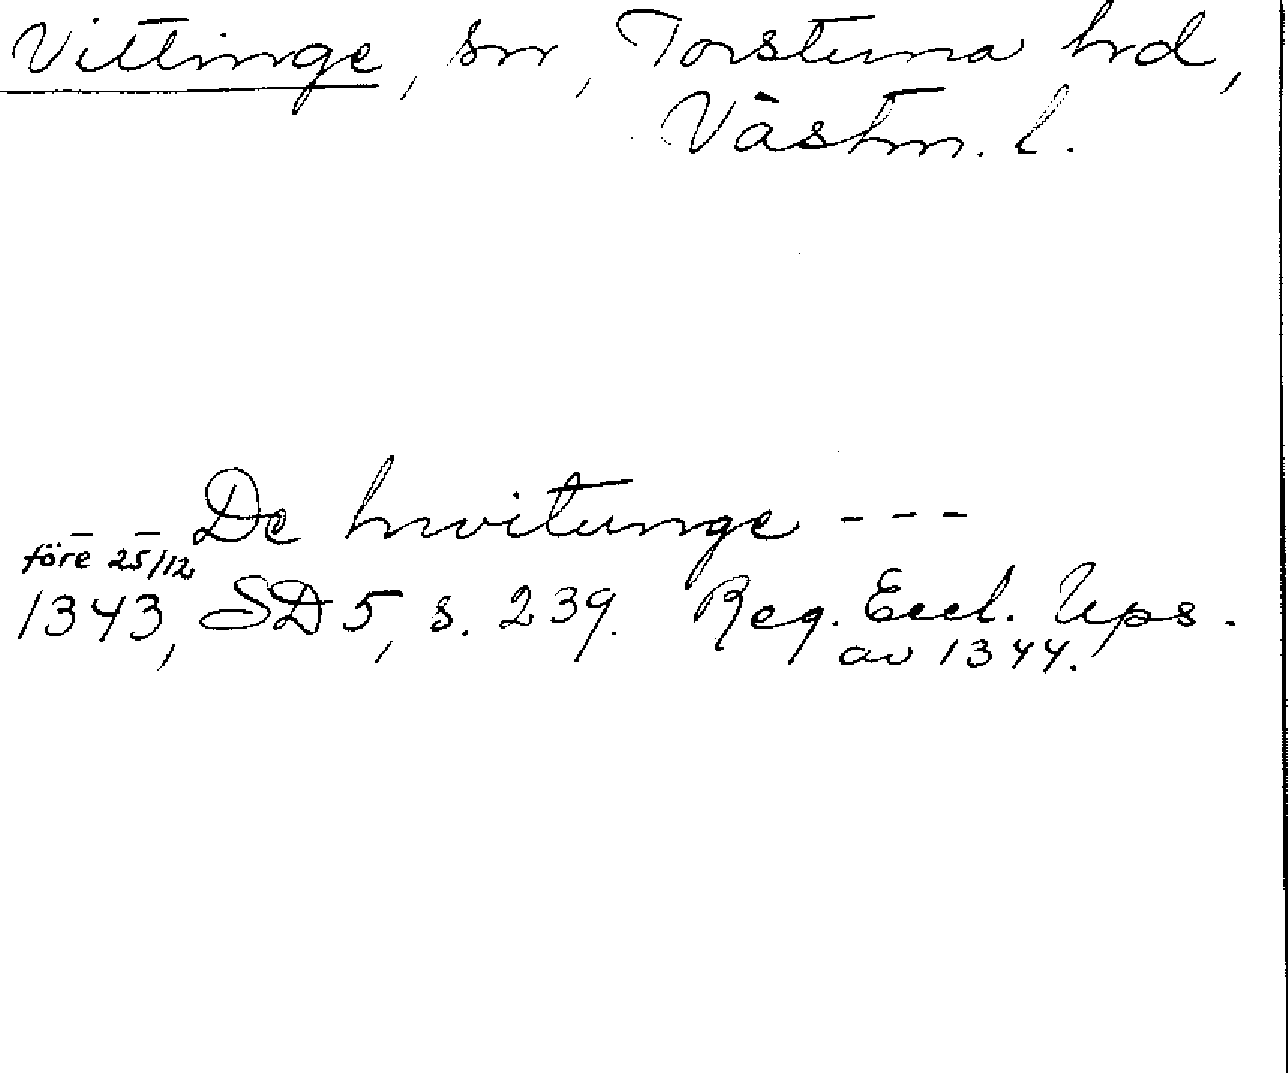 Vittinge, sn, Torstuna hrd,
Västm. l.
– – De hwitunge - - -
före 25/12
1343, SD 5, s. 239. Reg. Eccl. Ups.
av 1344.